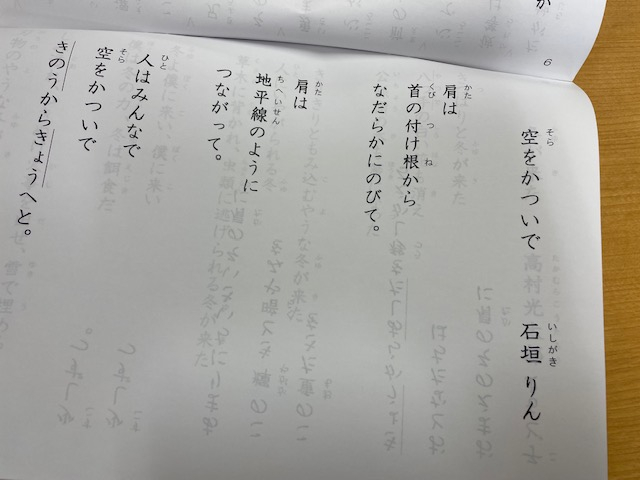 空をかついで 石垣りん
肩は
首の付け根から
なだらかにのびて。
肩は
地平線のように
つながって。
人はみんなで
空をかついで
きのうからきょうへと。
6